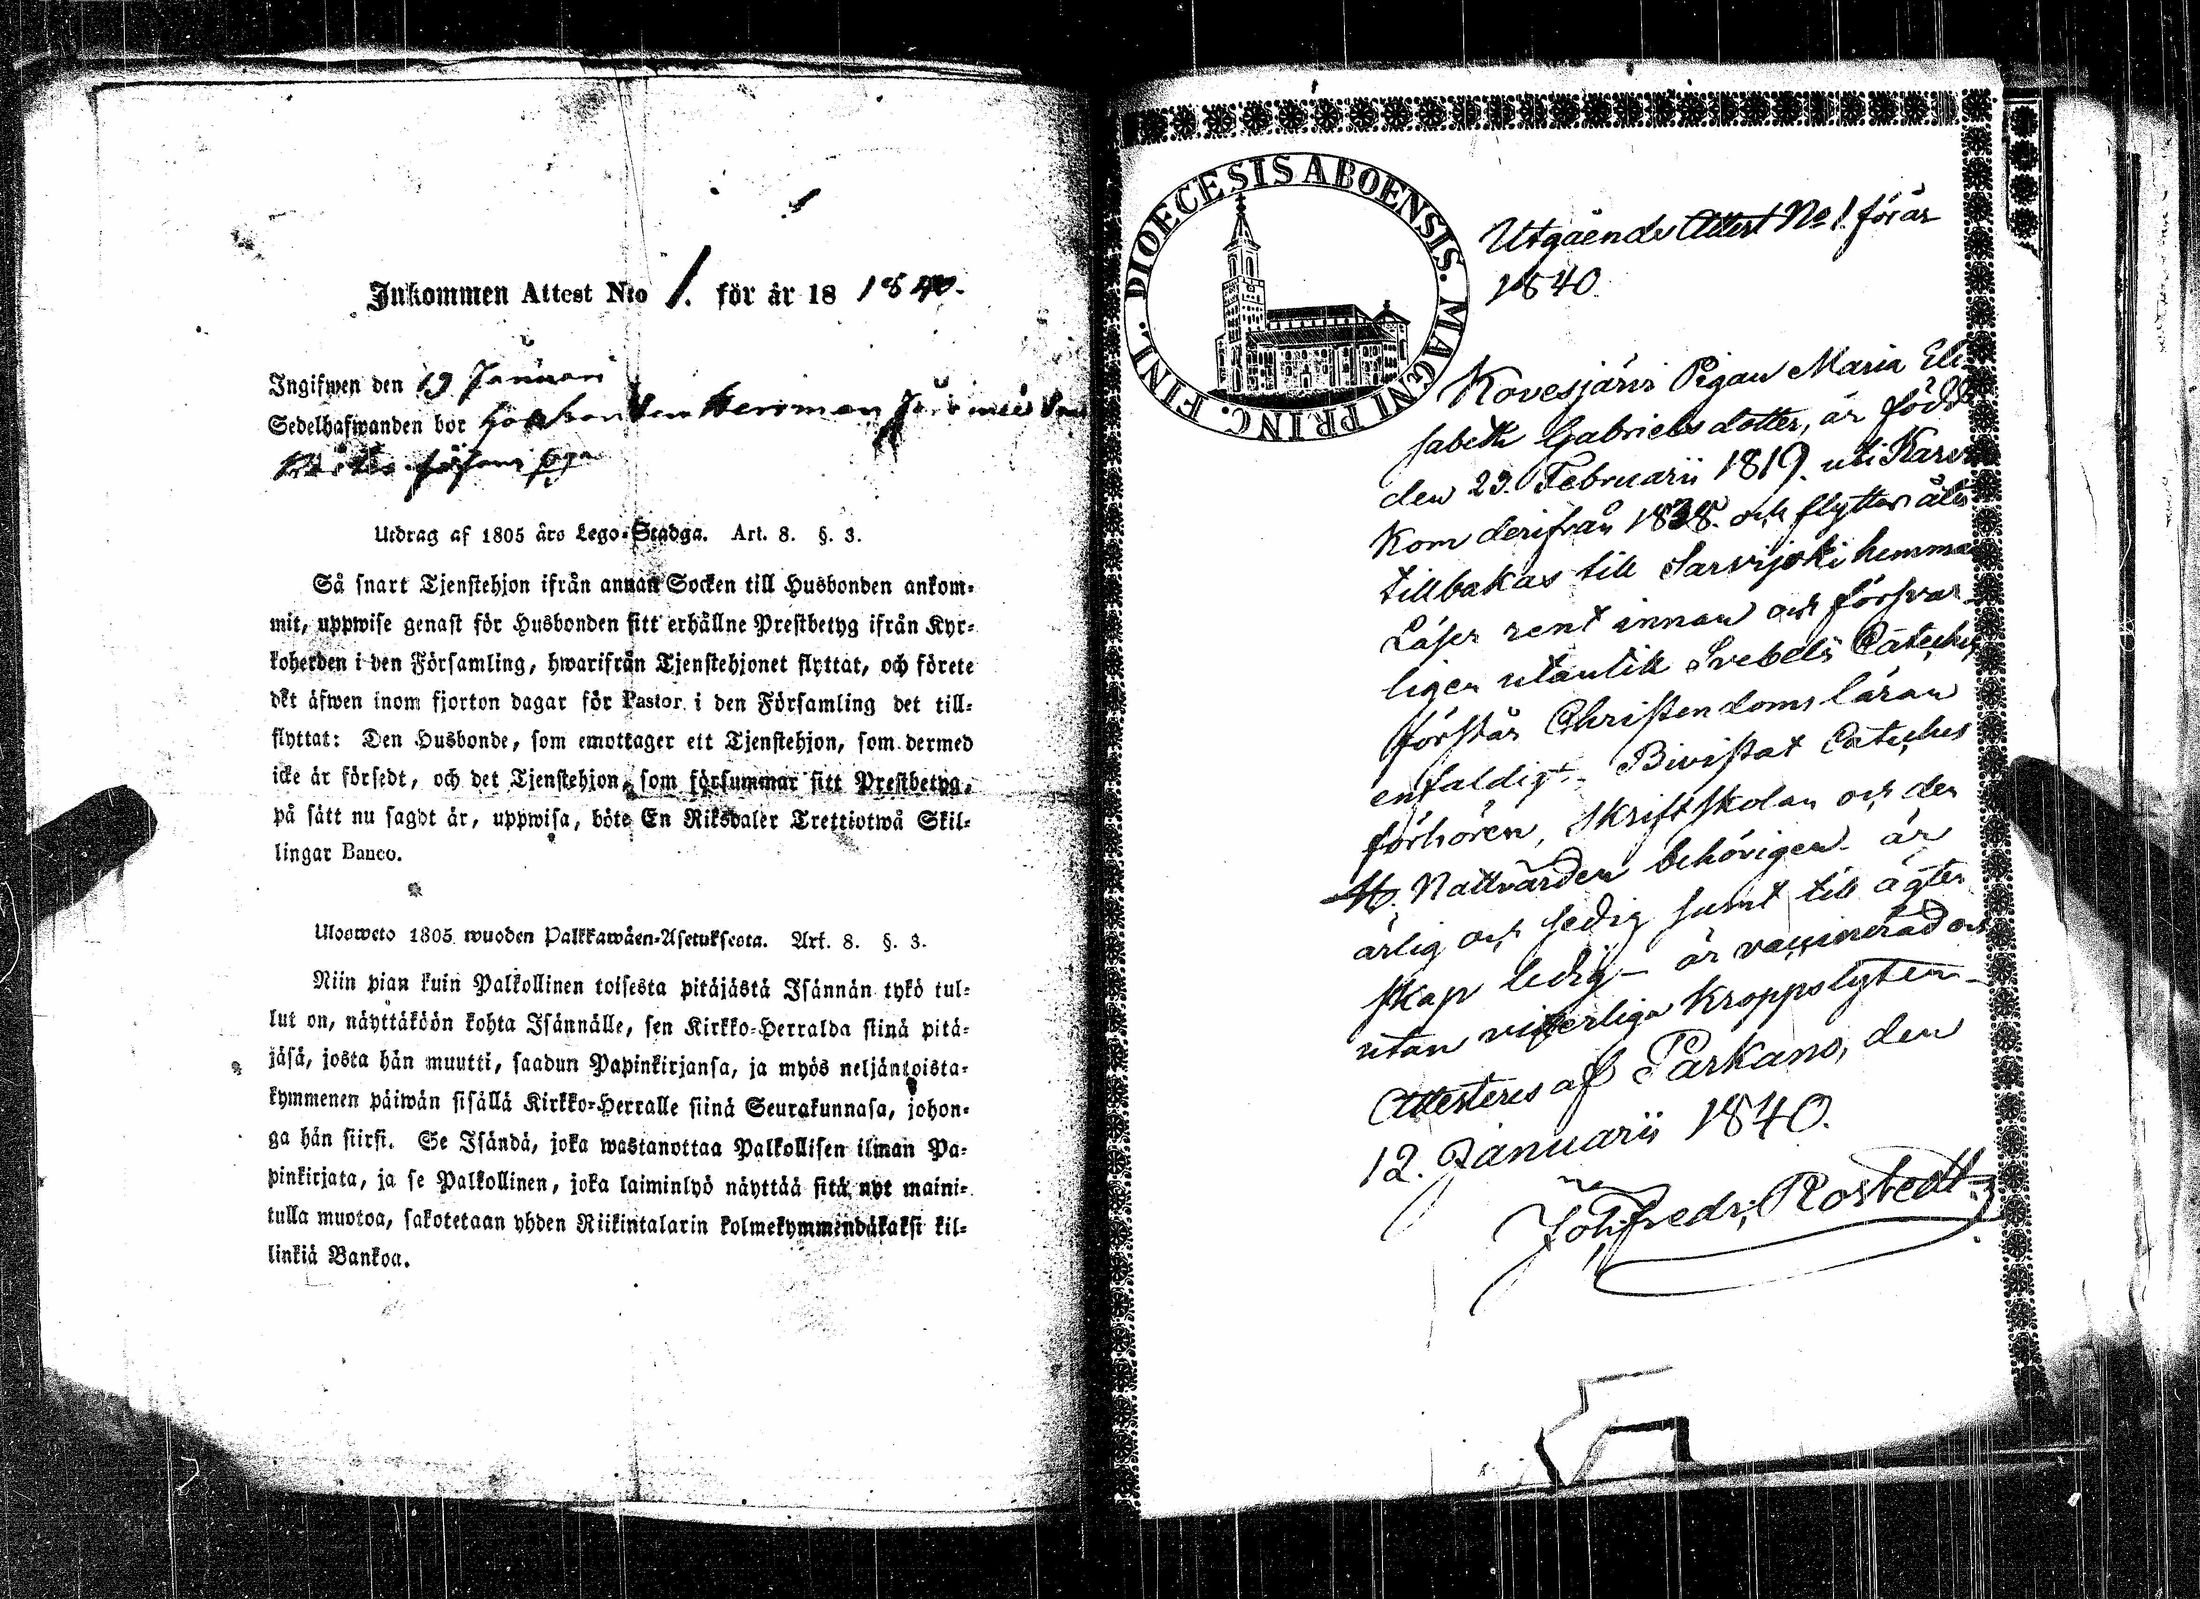 Inkommen Attest N:o 1. för år 18 1840.
Ingifwen den 19 Januari
Sedelhafwanden bor
Utdrag af 1805 års Lego-Stadga. Art. 8. §. 3.
Så snart Tjenstehjon ifrån annan Socken till Husbonden ankom-
mit, uppwise genast för Husbonden sitt erhållne Prestbetyg ifrån Kyr-
koherden i den Församling, hwarifrån Tjenstehjonet flyttat, och förete
det äfwen inom fjorton dagar för Pastor i den Församling det till-
flyttat: Den Husbonde, som emottager ett Tjenstehjon, som dermed
icke är försedt, och det Tjenstehjon, som försummar sitt Prestbetyg,
på sätt nu sagdt är, uppwisa, böte En Riksdaler Trettiotwå Skil-
lingar Banco.
Ulosweto 1805 wuoden Palkkawäen-Asetuksesta. Art. 8. §. 3.
Niin pian kuin Palkollinen toisesta pitäjästä Isännän tykö tul-
lut on, näyttäköön kohta Isännälle, sen Kirkko-Herralda siinä pitä-
jäsä, josta hän muutti, saadun Papinkirjansa, ja myös neljäntoista-
kymmenen päiwän sisällä Kirkko-Herralle siinä Seurakunnasa, johon-
ga hän siirsi. Se Isändä, joka wastanottaa Palkollisen ilman Pa-
pinkirjata, ja se Palkollinen, joka laiminlyö näyttää sitä nyt maini-
tulla muotoa, sakotetaan yhden Riikintalarin kolmekymmendäkaksi kil-
linkiä Bankoa.
DIOECESIS ABOENSIS. MAGNI PRINC. FINL.
Utgående Attest No 1. för år
1840.
Kovesjärvi Pigan Maria Eli
sabeth Gabrielsdotter, är född
den 23. Februarii 1819. uti
Kom derifrån 1838. och flyttar åter
tillbakas till Sarvijoki hemman
Läser rent innan och försvar-
ligen utantill Svebelii Cateches
förstår Christendoms läran
enfaldigt. Bivistat Catechis
förhören, Skriftskolan och den
H. Nattvarden behörigen - är
ärlig och sedig samt till ägten
skap ledig - är vaccinerad och
utan visserliga Kroppslyten -
Attesteres af Parkano, den
12. Januarii 1840.
Joh. Fredr. Rostedt